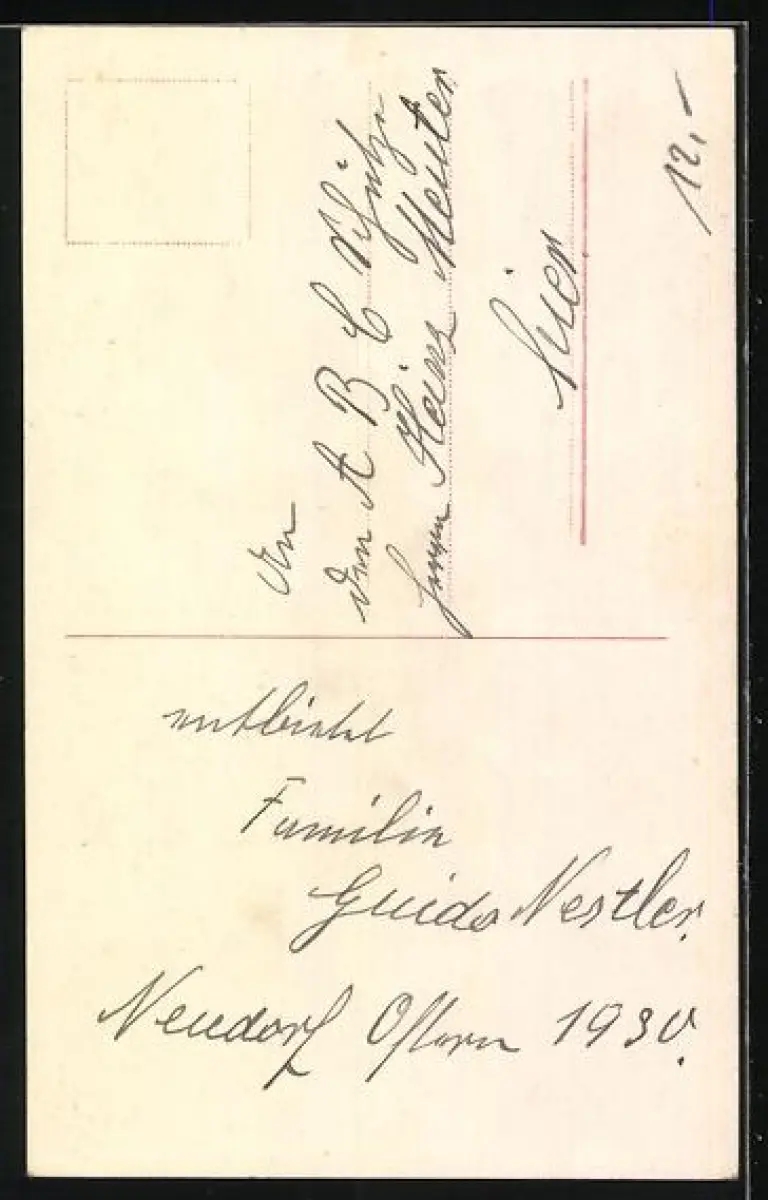 entbietet
Familie
Guido Nestler.
Neudorf Ostern 1930.
An
den A B C Schütze
Heinz Meuter
hier
12,-